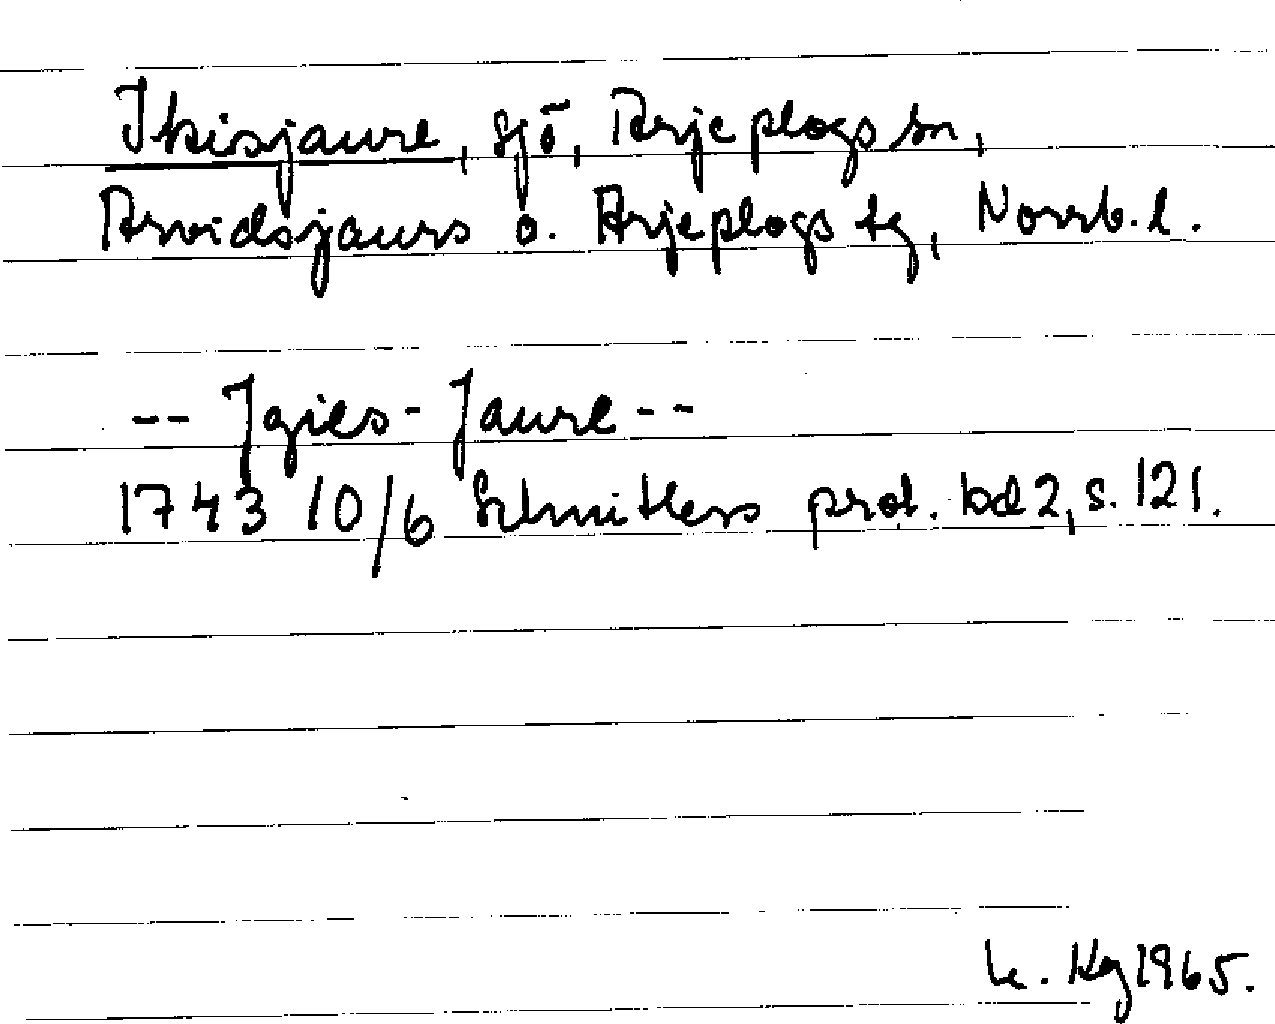 Ikisjaure, sjö, Arjeplogs sn,
Arvidsjaurs o. Arjeplogs tg, Norrb. l.
-- Jgies-Jaure --
1743 10/6 Schnitlers prot. bd 2, s. 121.
Kg 1965.